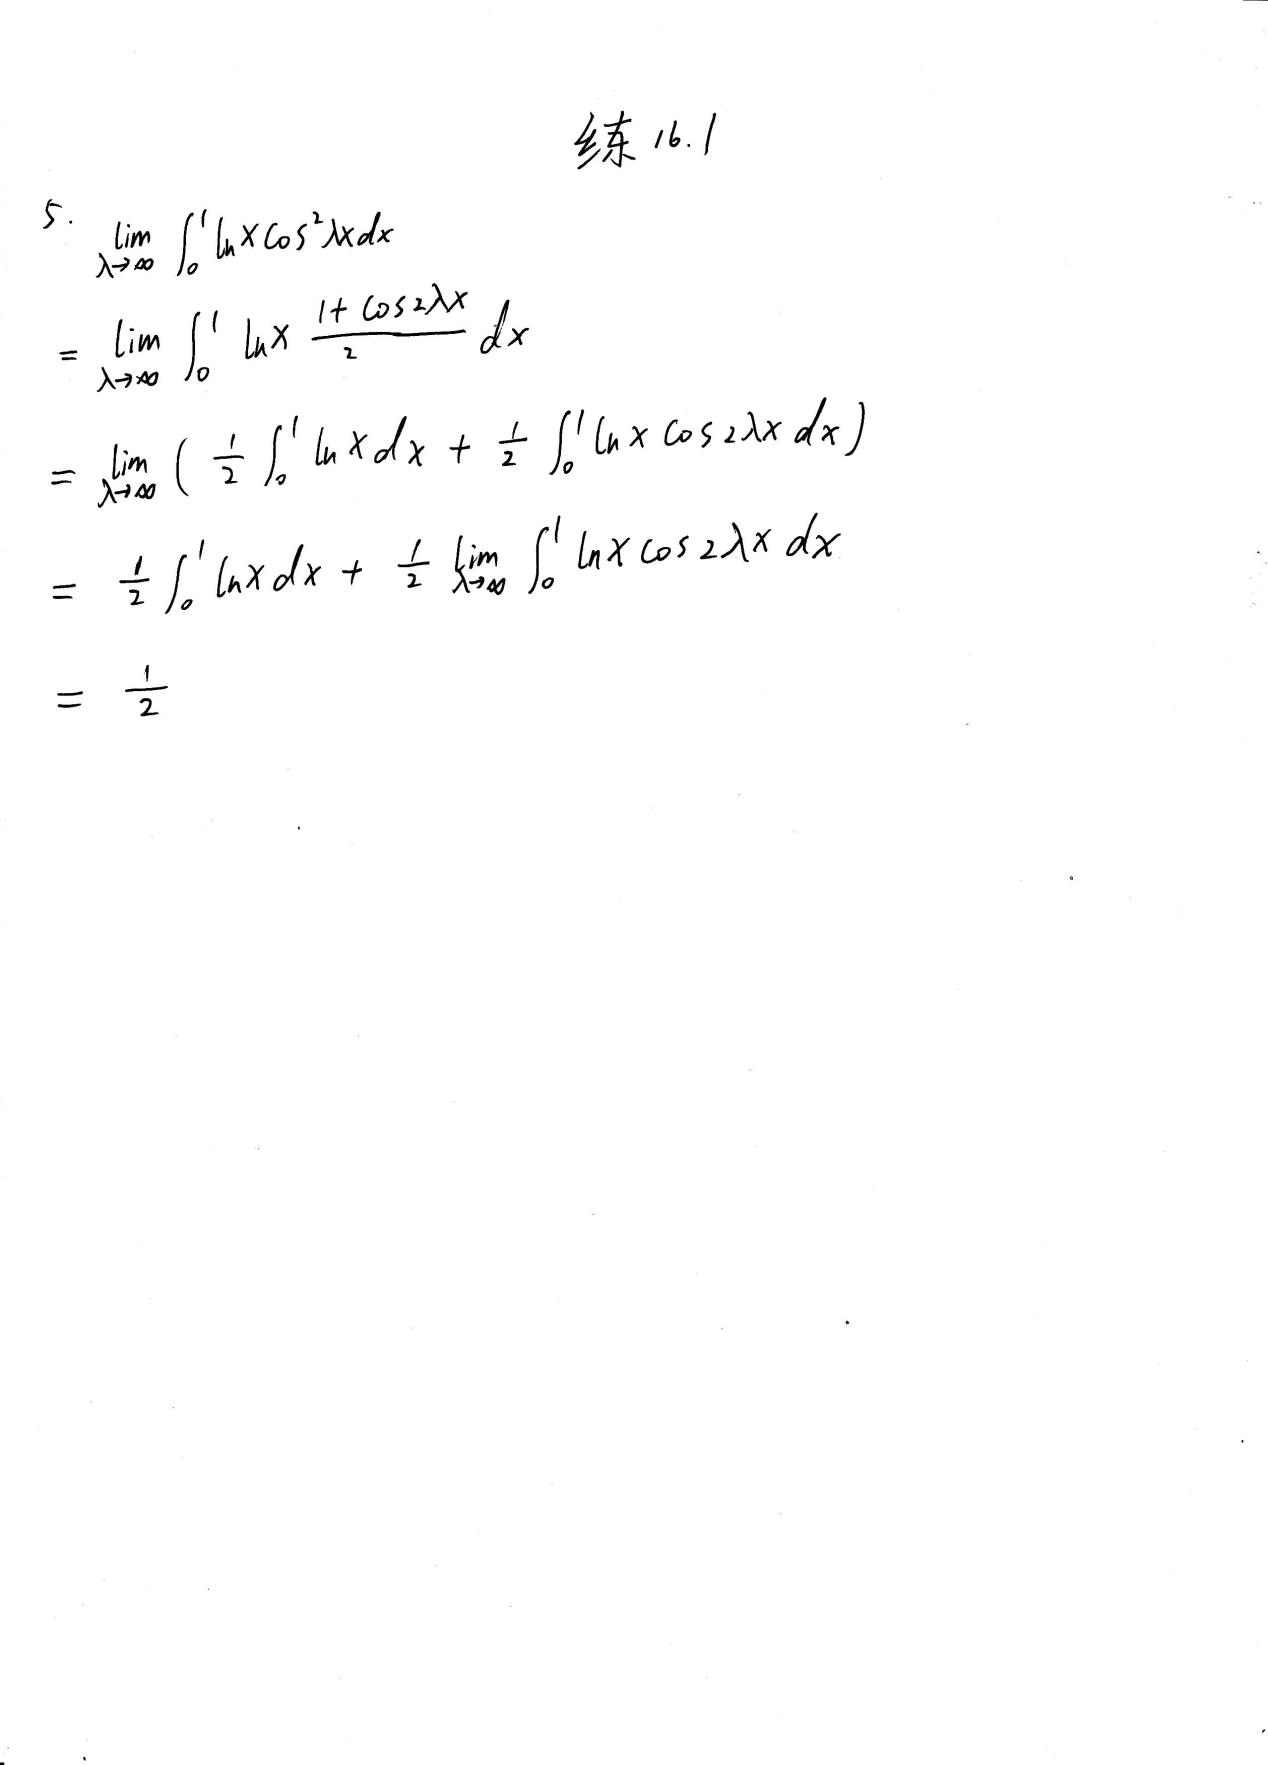 练 16.1
5. lim_{λ→∞} ∫_0^1 ln x cos²λx dx
= lim_{λ→∞} ∫_0^1 ln x \frac{1 + cos 2λx}{2} dx
= lim_{λ→∞} ( \frac{1}{2} ∫_0^1 ln x dx + \frac{1}{2} ∫_0^1 ln x cos 2λx dx )
= \frac{1}{2} ∫_0^1 ln x dx + \frac{1}{2} lim_{λ→∞} ∫_0^1 ln x cos 2λx dx
= \frac{1}{2}